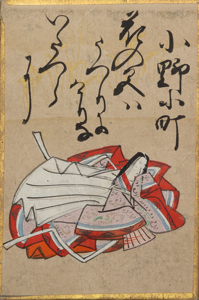 小野小町
花の色ハ
うつりに
けりな
いたつら
に